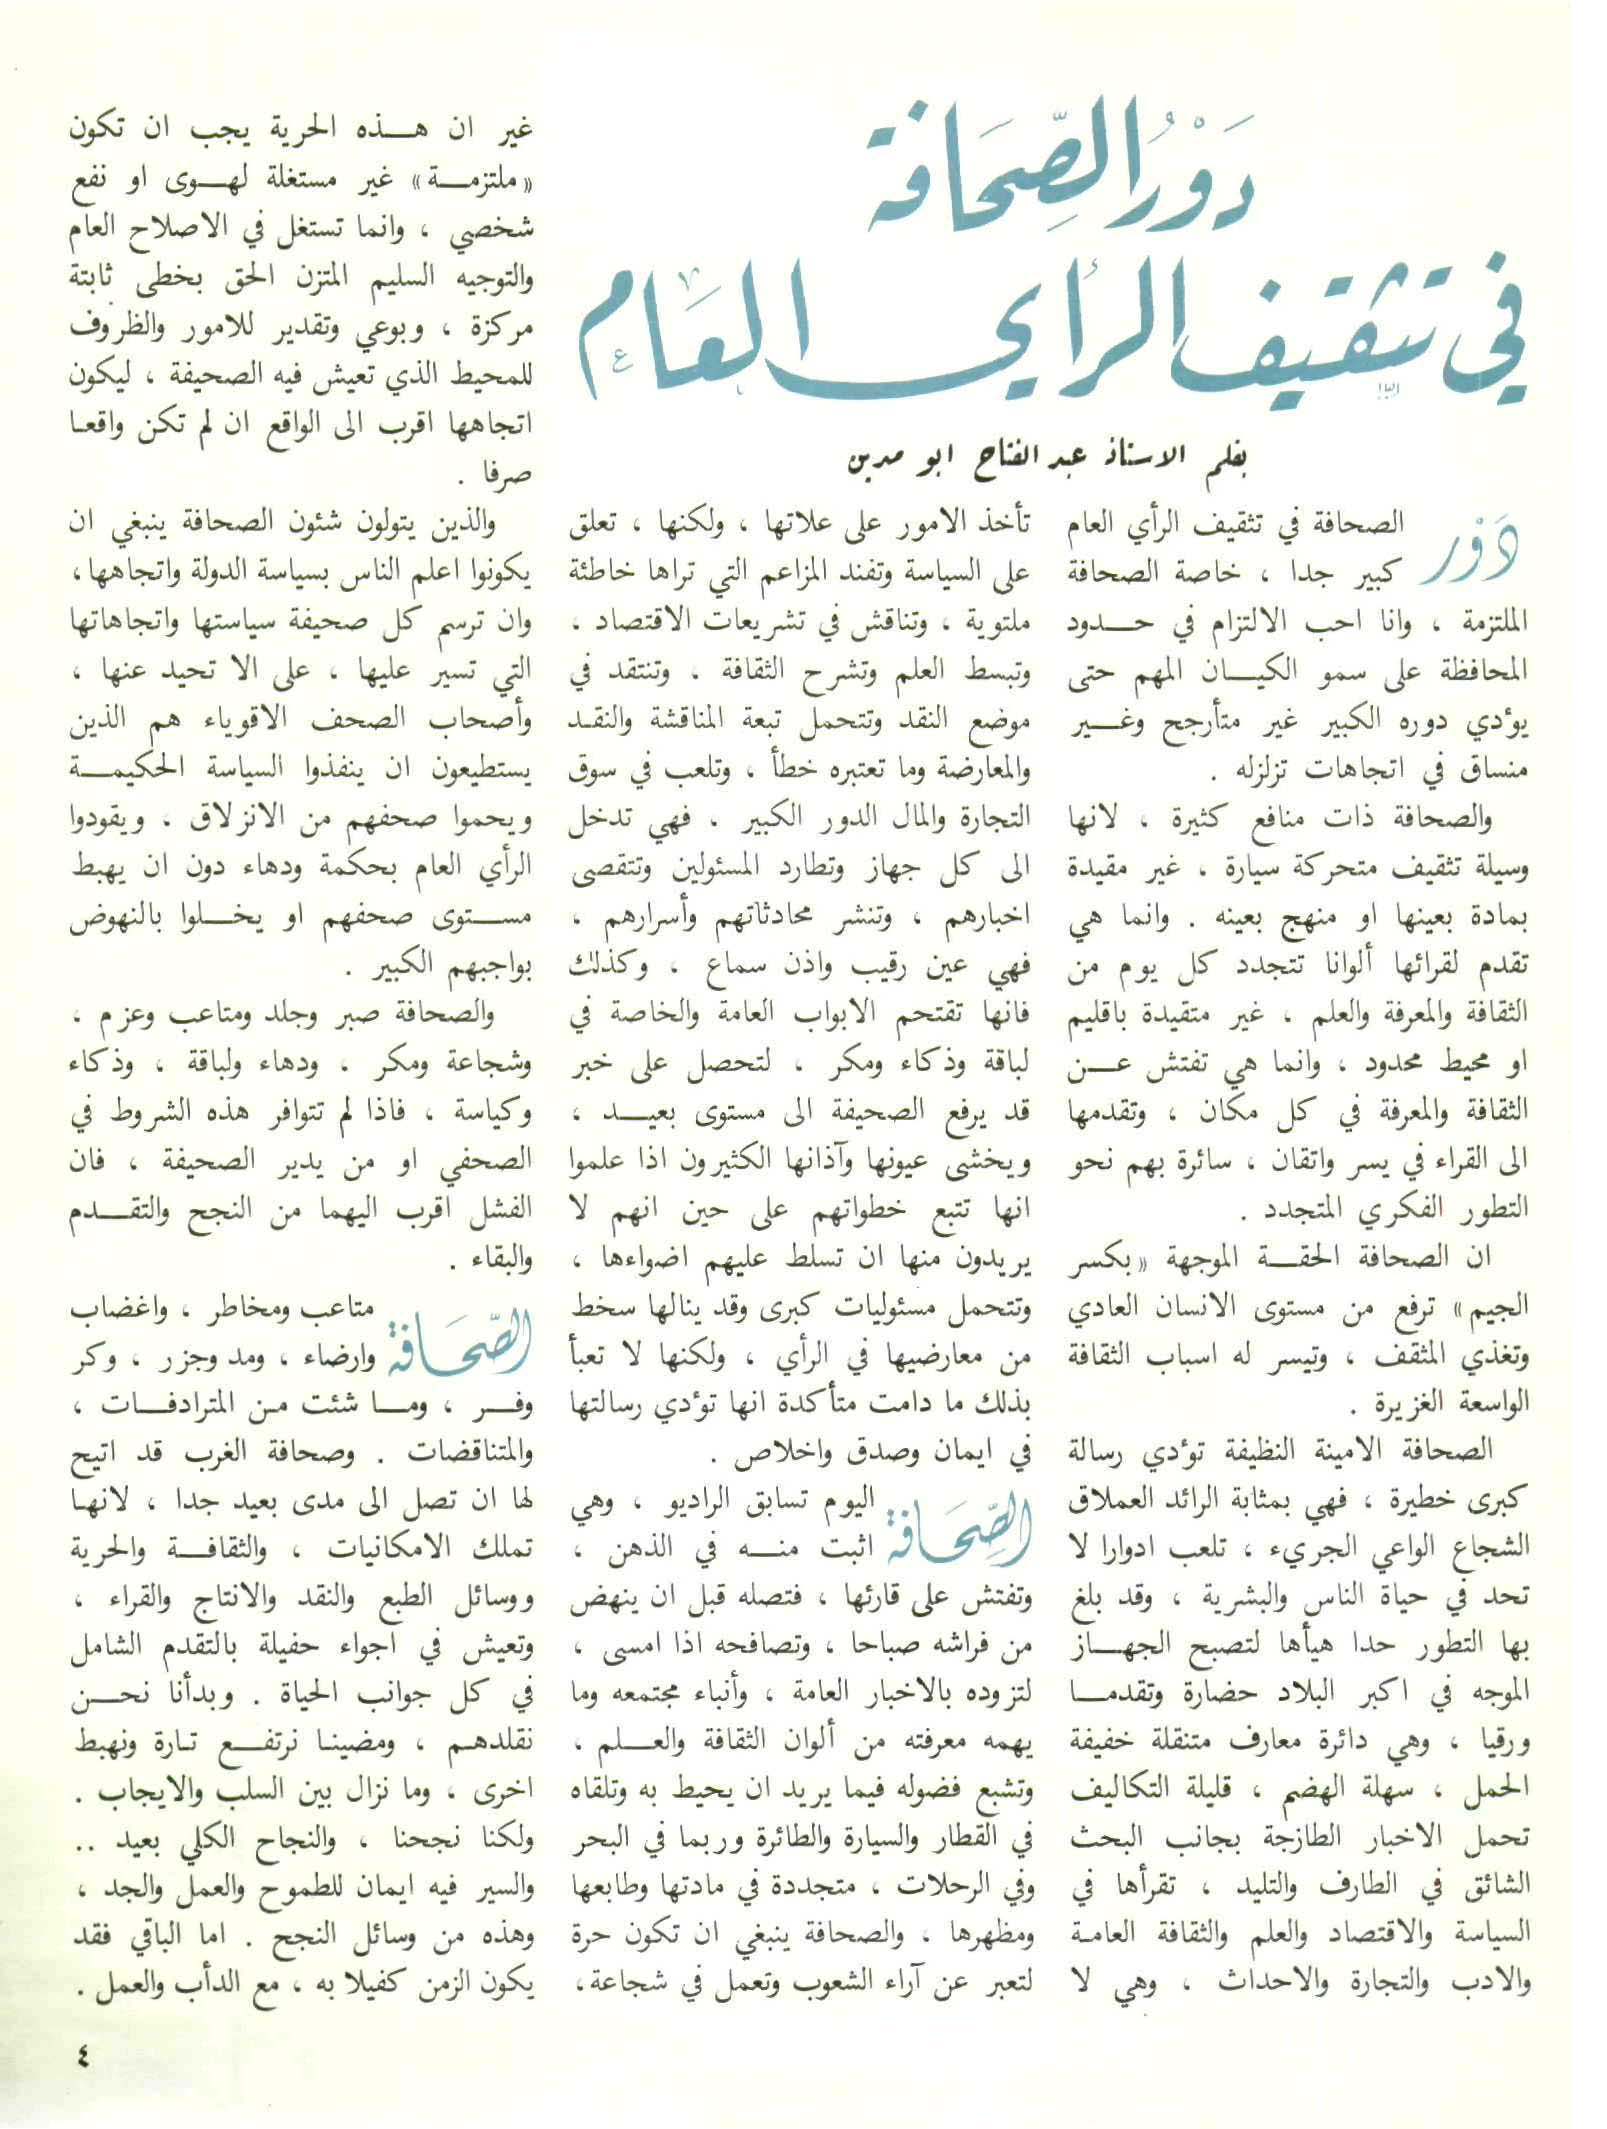 دَوْرُ الصِّحَافة
في تثقيف الرأي العَام
بقلم الاستاذ عبد الفتاح ابو مدين
دَوْر الصحافة في تثقيف الرأي العام
كبير جدا ، خاصة الصحافة
الملتزمة ، وانا احب الالتزام في حـــدود
المحافظة على سمو الكيـــان المهم حتى
يؤدي دوره الكبير غير متأرجح وغـــير
منساق في اتجاهات تزلزله .
والصحافة ذات منافع كثيرة ، لانها
وسيلة تثقيف متحركة سيارة ، غير مقيدة
بمادة بعينها او منهج بعينه . وانما هي
تقدم لقرائها ألوانا تتجدد كل يوم من
الثقافة والمعرفة والعلم ، غير متقيدة باقليم
او محيط محدود ، وانما هي تفتش عـــن
الثقافة والمعرفة في كل مكان ، وتقدمها
الى القراء في يسر واتقان ، سائرة بهم نحو
التطور الفكري المتجدد .
ان الصحافة الحقـــة الموجهة «بكسر
الجيم» ترفع من مستوى الانسان العادي
وتغذي المثقف ، وتيسر له اسباب الثقافة
الواسعة الغزيرة .
الصحافة الامينة النظيفة تؤدي رسالة
كبرى خطيرة ، فهي بمثابة الرائد العملاق
الشجاع الواعي الجريء ، تلعب ادوارا لا
تحد في حياة الناس والبشرية ، وقد بلغ
بها التطور حدا هيأها لتصبح الجهـــاز
الموجه في اكبر البلاد حضارة وتقدمـــا
ورقيا ، وهي دائرة معارف متنقلة خفيفة
الحمل ، سهلة الهضم ، قليلة التكاليف
تحمل الاخبار الطازجة بجانب البحث
الشائق في الطارف والتليد ، تقرأها في
السياسة والاقتصاد والعلم والثقافة العامة
والادب والتجارة والاحداث ، وهي لا
تأخذ الامور على علاتها ، ولكنها ، تعلق
على السياسة وتفند المزاعم التي تراها خاطئة
ملتوية ، وتناقش في تشريعات الاقتصاد ،
وتبسط العلم وتشرح الثقافة ، وتنتقد في
موضع النقد وتتحمل تبعة المناقشة والنقـد
والمعارضة وما تعتبره خطأ ، وتلعب في سوق
التجارة والمال الدور الكبير . فهي تدخل
الى كل جهاز وتطارد المسئولين وتتقصى
اخبارهم ، وتنشر محادثاتهم وأسرارهم ،
فهي عين رقيب واذن سماع ، وكذلك
فانها تقتحم الابواب العامة والخاصة في
لباقة وذكاء ومكر ، لتحصل على خبر
قد يرفع الصحيفة الى مستوى بعيـــد ،
ويخشى عيونها وآذانها الكثيرون اذا علموا
انها تتبع خطواتهم على حين انهم لا
يريدون منها ان تسلط عليهم اضواءها ،
وتتحمل مسئوليات كبرى وقد ينالها سخط
من معارضيها في الرأي ، ولكنها لا تعبأ
بذلك ما دامت متأكدة انها تؤدي رسالتها
في ايمان وصدق واخلاص .
الصِّحَافة اليوم تسابق الراديو ، وهي
اثبت منـــه في الذهن ،
وتفتش على قارئها ، فتصله قبل ان ينهض
من فراشه صباحا ، وتصافحه اذا امسى ،
لتزوده بالاخبار العامة ، وأنباء مجتمعه وما
يهمه معرفته من ألوان الثقافة والعـــلم ،
وتشبع فضوله فيما يريد ان يحيط به وتلقاه
في القطار والسيارة والطائرة وربما في البحر
وفي الرحلات ، متجددة في مادتها وطابعها
ومظهرها ، والصحافة ينبغي ان تكون حرة
لتعبر عن آراء الشعوب وتعمل في شجاعة،
غير ان هـــذه الحرية يجب ان تكون
«ملتزمـــة» غير مستغلة لهـــوى او نفع
شخصي ، وانما تستغل في الاصلاح العام
والتوجيه السليم المتزن الحق بخطى ثابتة
مركزة ، وبوعي وتقدير للامور والظروف
للمحيط الذي تعيش فيه الصحيفة ، ليكون
اتجاهها اقرب الى الواقع ان لم تكن واقعـا
صرفا .
والذين يتولون شئون الصحافة ينبغي ان
يكونوا اعلم الناس بسياسة الدولة واتجاهها،
وان ترسم كل صحيفة سياستها واتجاهاتها
التي تسير عليها ، على الا تحيد عنها ،
وأصحاب الصحف الاقوياء هم الذين
يستطيعون ان ينفذوا السياسة الحكيمـــة
ويحموا صحفهم من الانزلاق ، ويقودوا
الرأي العام بحكمة ودهاء دون ان يهبط
مستـــوى صحفهم او يخـــلوا بالنهوض
بواجبهم الكبير .
والصحافة صبر وجلد ومتاعب وعزم ،
وشجاعة ومكر ، ودهاء ولباقة ، وذكاء
وكياسة ، فاذا لم تتوافر هذه الشروط في
الصحفي او من يدير الصحيفة ، فان
الفشل اقرب اليهما من النجح والتقـــدم
والبقاء .
الصِّحَافة متاعب ومخاطر ، واغضاب
وارضاء ، ومد وجزر ، وكر
وفـــر ، ومـــا شئت مـن المترادفـــات ،
والمتناقضات . وصحافة الغرب قد اتيح
لها ان تصل الى مدى بعيد جدا ، لانهـا
تملك الامكانيات ، والثقافـــة والحرية
ووسائل الطبع والنقد والانتاج والقراء ،
وتعيش في اجواء حفيلة بالتقدم الشامل
في كل جوانب الحياة . وبدأنا نحـــن
نقلدهـــم ، ومضينـا نرتفـــع تـارة ونهبط
اخرى ، وما نزال بين السلب والايجاب .
ولكنا نجحنا ، والنجاح الكلي بعيد ..
والسير فيه ايمان للطموح والعمل والجد ،
وهذه من وسائل النجح . اما الباقي فقد
يكون الزمن كفيلا به ، مع الدأب والعمل .
٤